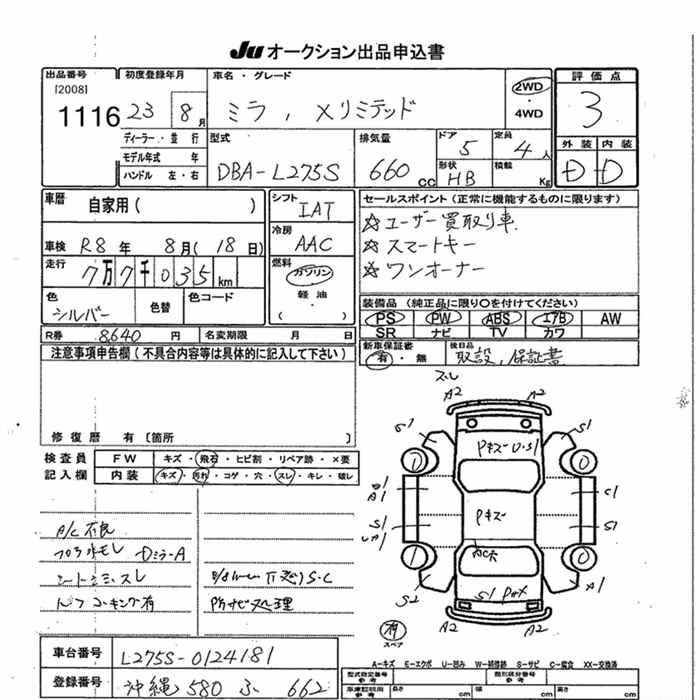 JU オークション出品申込書
出品番号 [2008] 1116
初度登録年月 23 8月
車名・グレード ミラ, Xリミテッド
2WD ・ 4WD
評価点 3
外装 D 内装 D
ディーラー・並行
モデル年式 年
ハンドル 左・右
型式 DBA-L275S
排気量 660cc
ドア 5
定員 4人
形状 HB
積載 Kg
車歴 自家用( )
シフト IAT
車検 R8年 8月(18日)
冷房 AAC
走行 7万7千035km
燃料 ガソリン ・ 軽油 ・ ( )
色 シルバー
色替
色コード
R券 8,640円
名変期限 月 日
セールスポイント(正常に機能するものに限ります)
☆ユーザー買取り車
☆スマートキー
☆ワンオーナー
装備品(純正品に限り○を付けてください)
PS PW ABS エアB AW
SR ナビ TV カワ
新車保証書 有・無
後日品 取説,保証書
注意事項申告欄(不具合内容等は具体的に記入して下さい)
修復歴 有〔箇所 〕
検査員記入欄
FW キズ・飛石・ヒビ割・リペア跡・×要
内装 キズ・汚れ・コゲ・穴・スレ・キレ・破レ
A/C不良
DミラーA
シートシミ、スレ
コーキング有
S・C
サビ処理
ズレ
A2 A2
S1 S1
PキズU・S1
A1 C1
Pキズ
S1 S1
AC穴
S2 A1
S1
A2 A2
有 スペア
A-キズ E-エクボ U-凹み W-補修跡 S-サビ C-腐食 XX-交換済
車台番号 L275S-0124181
登録番号 沖縄 580 ふ 662
型式指定番号 参考
類別区分番号 参考
車庫証明用 参考 長さ cm 幅 cm 高さ cm